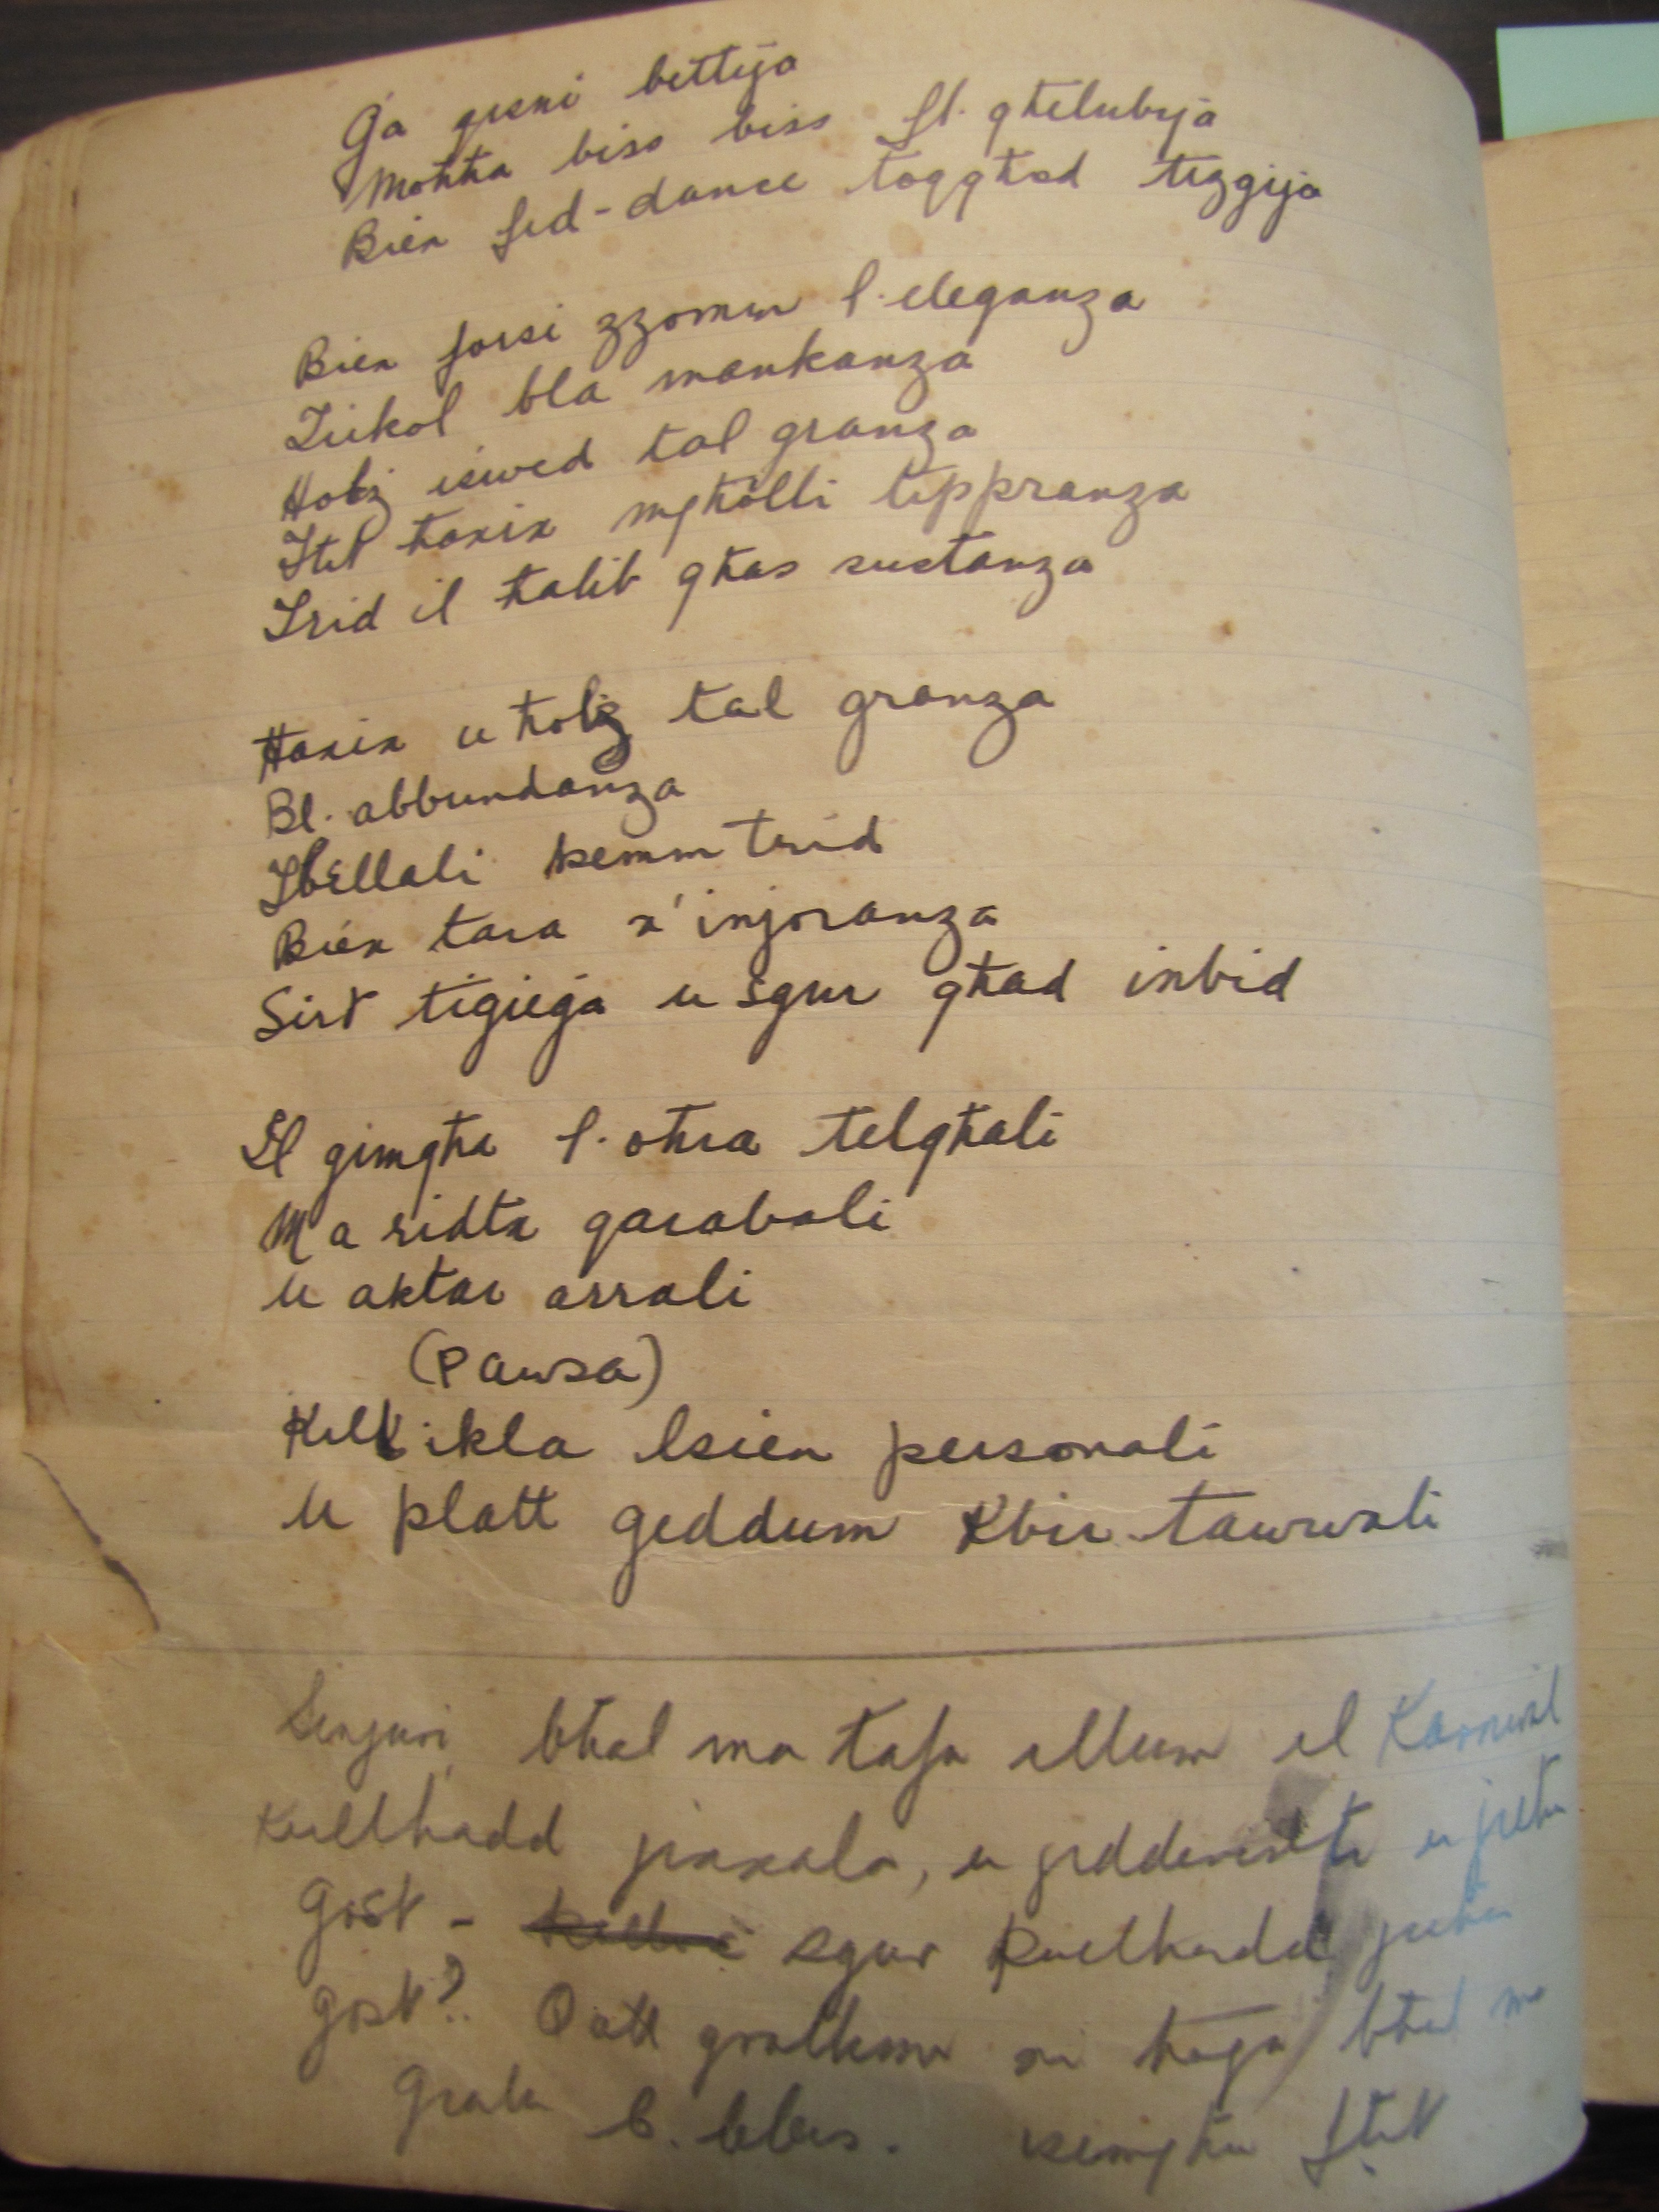 Ġa ġieni bettija
Moħħa biss biss fl. għelubija
Biex fid-dance toqgħod tiżżija
Biex forsi żżomm l. eleganza
Tiekol bla mankanza
Ħobż iswed tal granza
Ftit ħaxix mgħolli tippranza
Irid il ħalib għas sustanza
Ħaxix u ħobż tal granza
Bl. abbundanza
Ibellali kemm trid
Biex tara x' injoranza
Sirt tiġieġa u żgur għad inbid
Il ġimgħa l. oħra telgħali
Ma ridtx qarabali
U aktar arrali
(Pawsa)
Kull ikla lsien personali
U platt geddum kbir tawwali
Sinjuri, bħal ma tafu illum il Karnival
Kulħadd jinxala, u jiddeverti u jieħu
Gost - żgur kulħadd jieħu
gost? Qatt ġralkom xi ħaġa bħal ma
Ġrala l. bieb. ftit